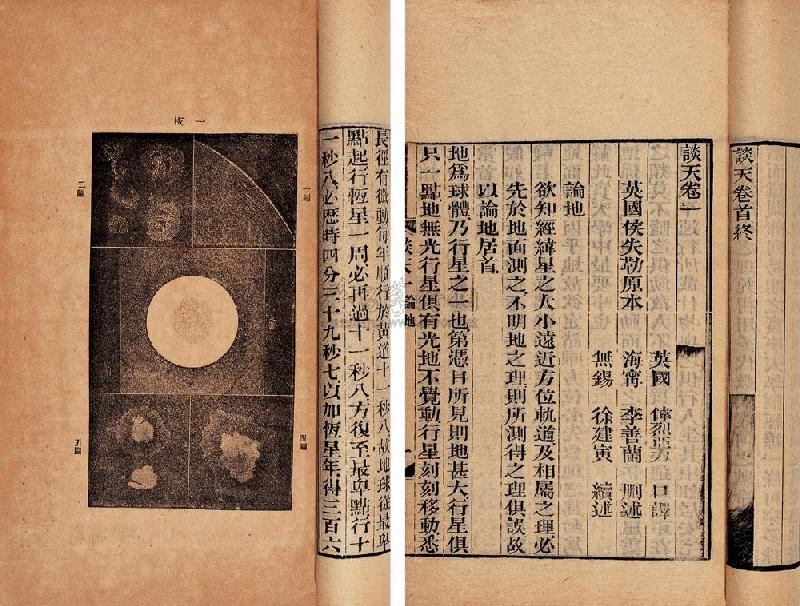 長徑有微動每年順行於黃道十一秒八故地球從最卑
點起行恆星一周必再過十一秒八方復至最卑點行十
一秒八必歷時四分三十九秒七以加恆星年得三百六
一板
一圖
二圖
四圖
五圖
談天卷首終
談天卷一
英國侯失勒原本
英國 偉烈亞力 口譯
海甯 李善蘭 刪述
無錫 徐建寅 續述
論地
欲知經緯星之大小遠近方位軌道及相屬之理必
先於地面測之不明地之理則所測得之理俱誤故
以論地居首
地爲球體乃行星之一也第憑目所見則地甚大行星俱
只一點地無光行星俱有光地不覺動行星刻刻移動悉
談天一 論地